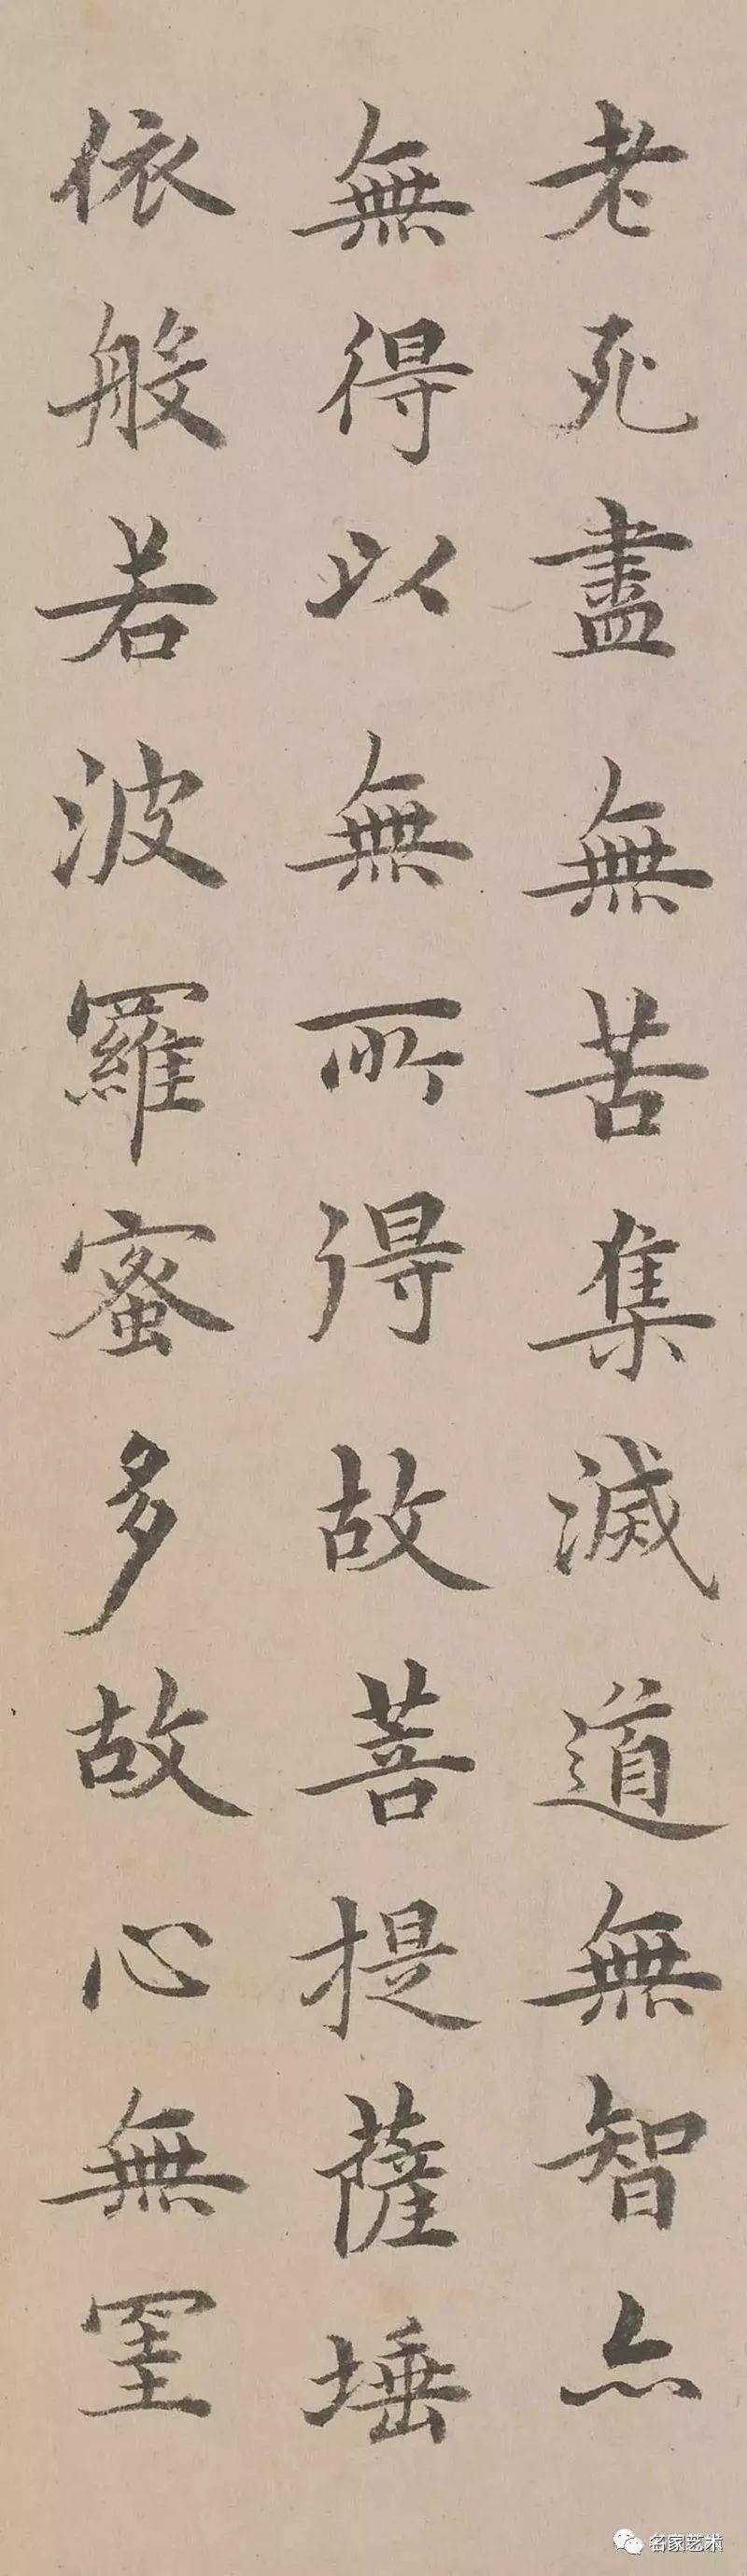 老死盡無苦集滅道無智亦
無得以無所得故菩提薩埵
依般若波羅蜜多故心無罣
名家艺术